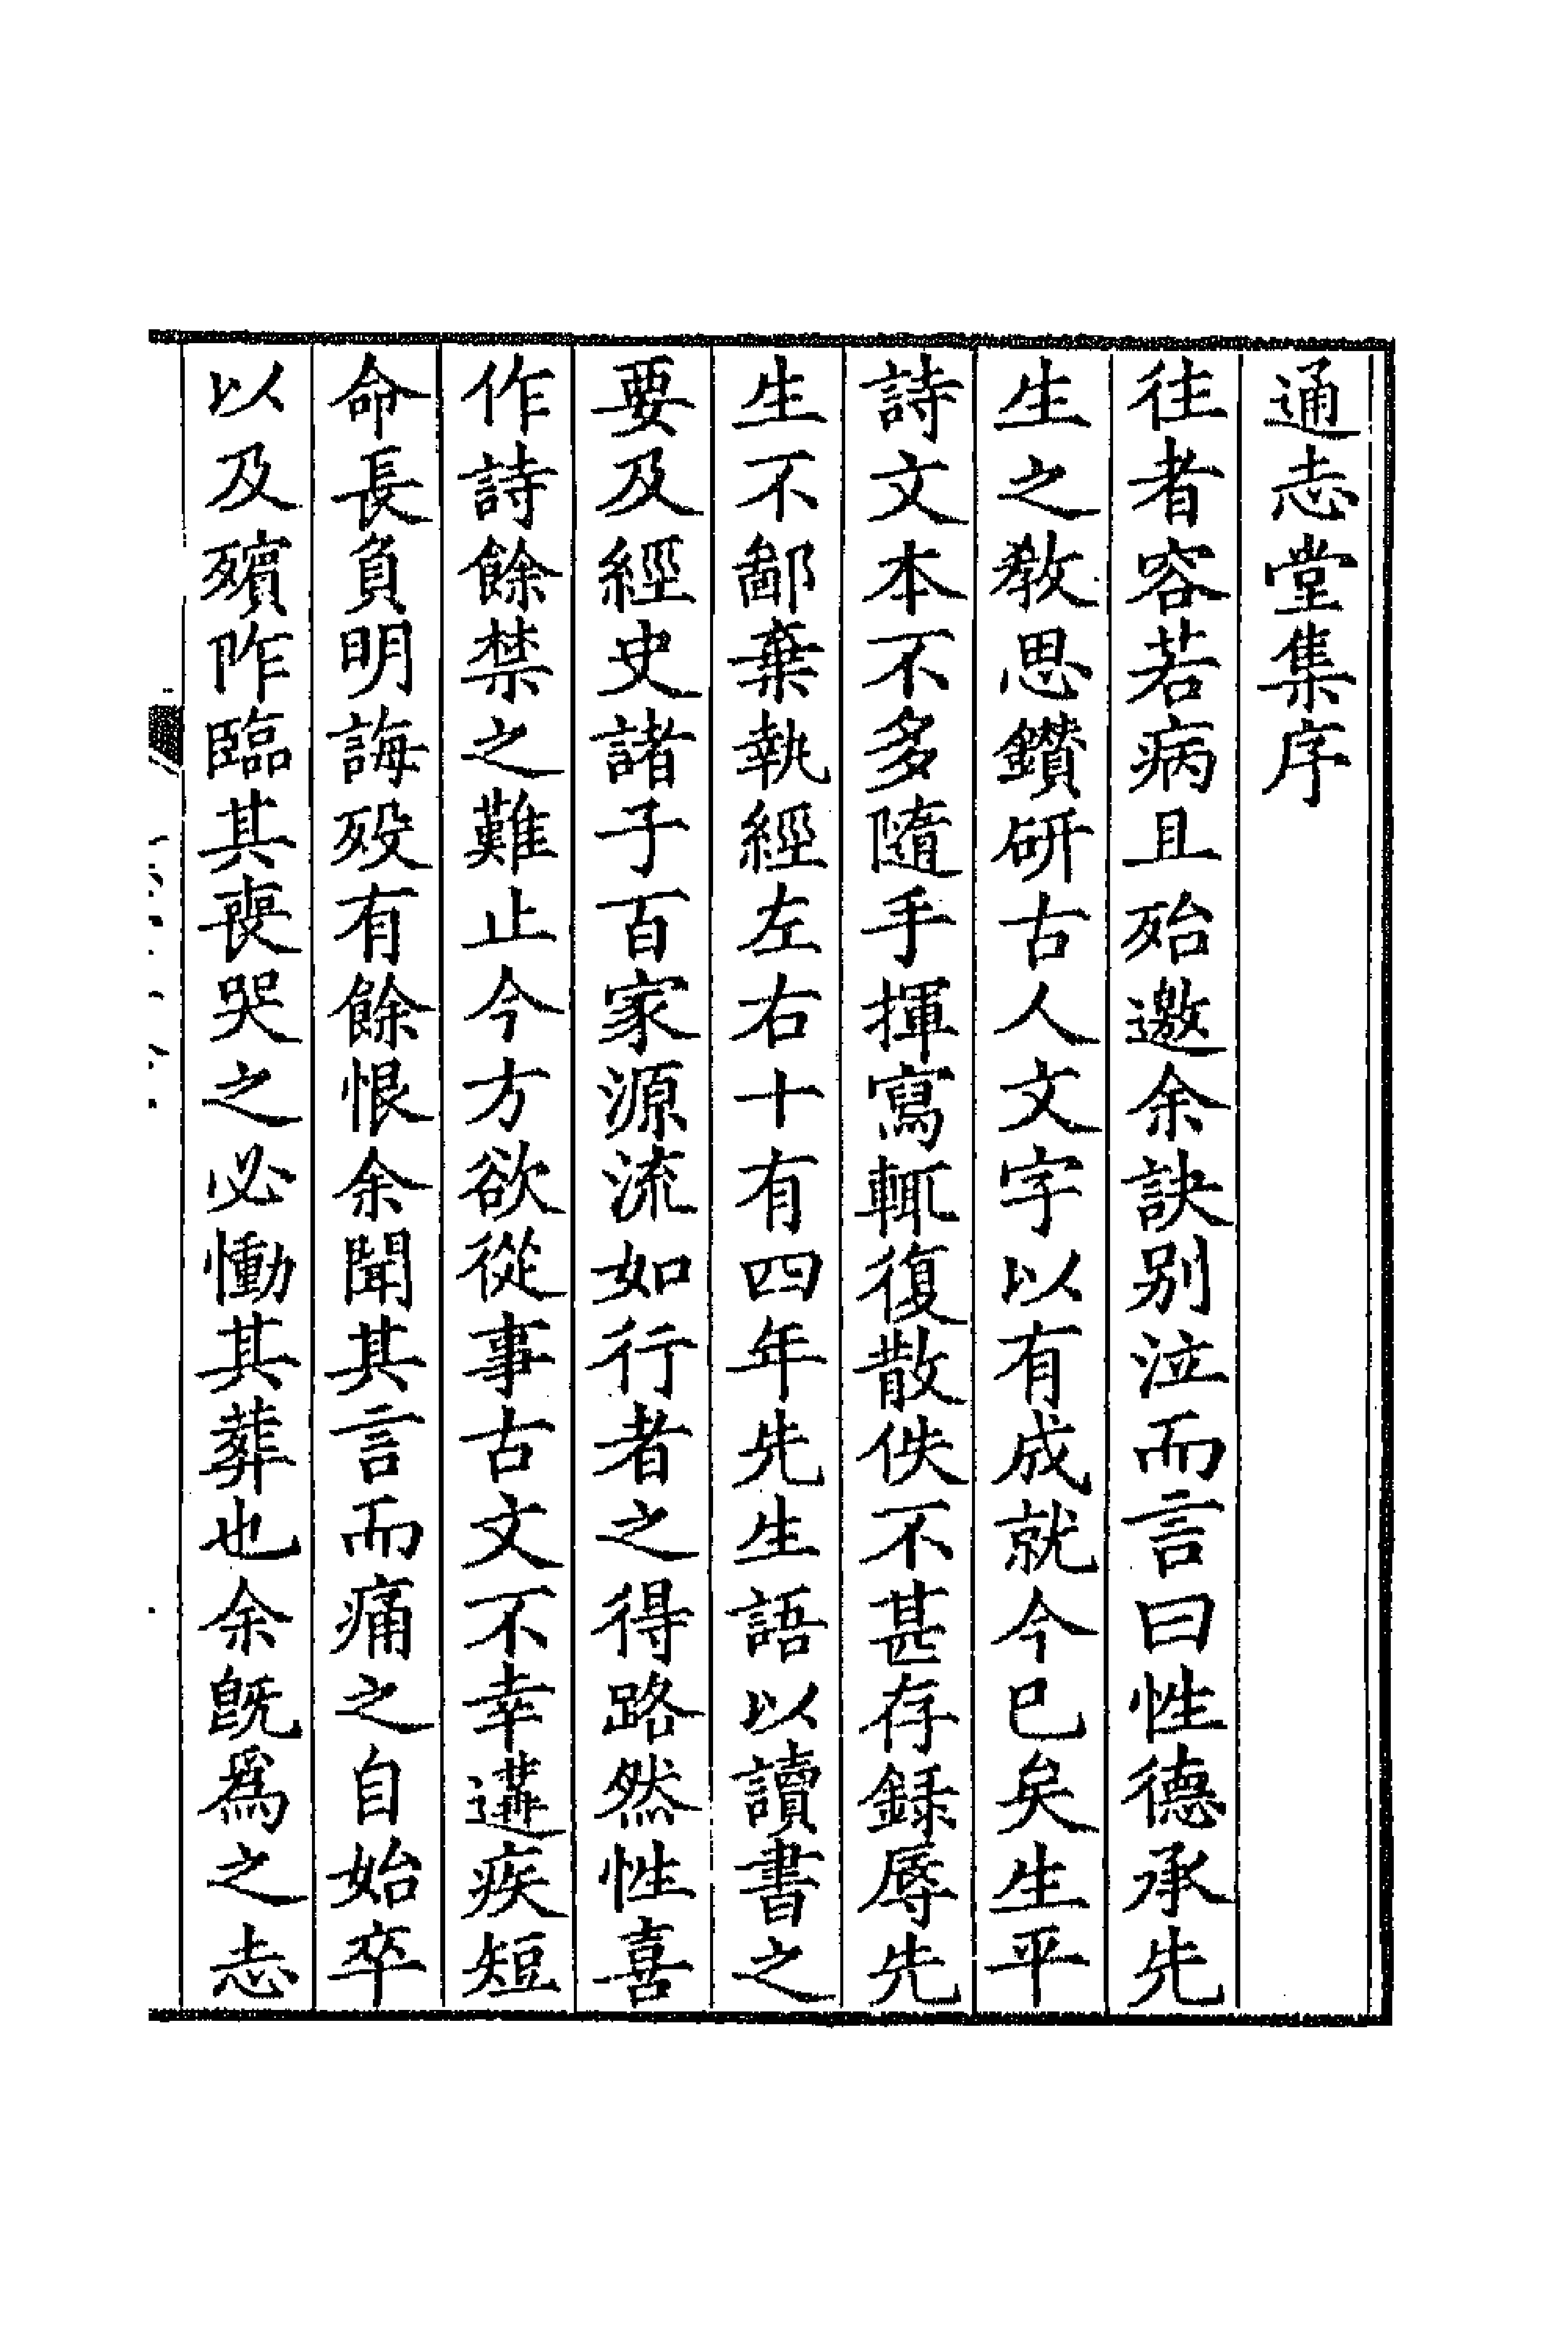 通志堂集序
往者容若病且殆邀余訣别泣而言曰性德承先
生之教思鑽研古人文字以有成就今已矣生平
詩文本不多隨手揮寫輒復散佚不甚存録辱先
生不鄙棄執經左右十有四年先生語以讀書之
要及經史諸子百家源流如行者之得路然性喜
作詩餘禁之難止今方欲從事古文不幸遘疾短
命長負明誨殁有餘恨余聞其言而痛之自始卒
以及殯阼臨其喪哭之必慟其葬也余旣爲之志